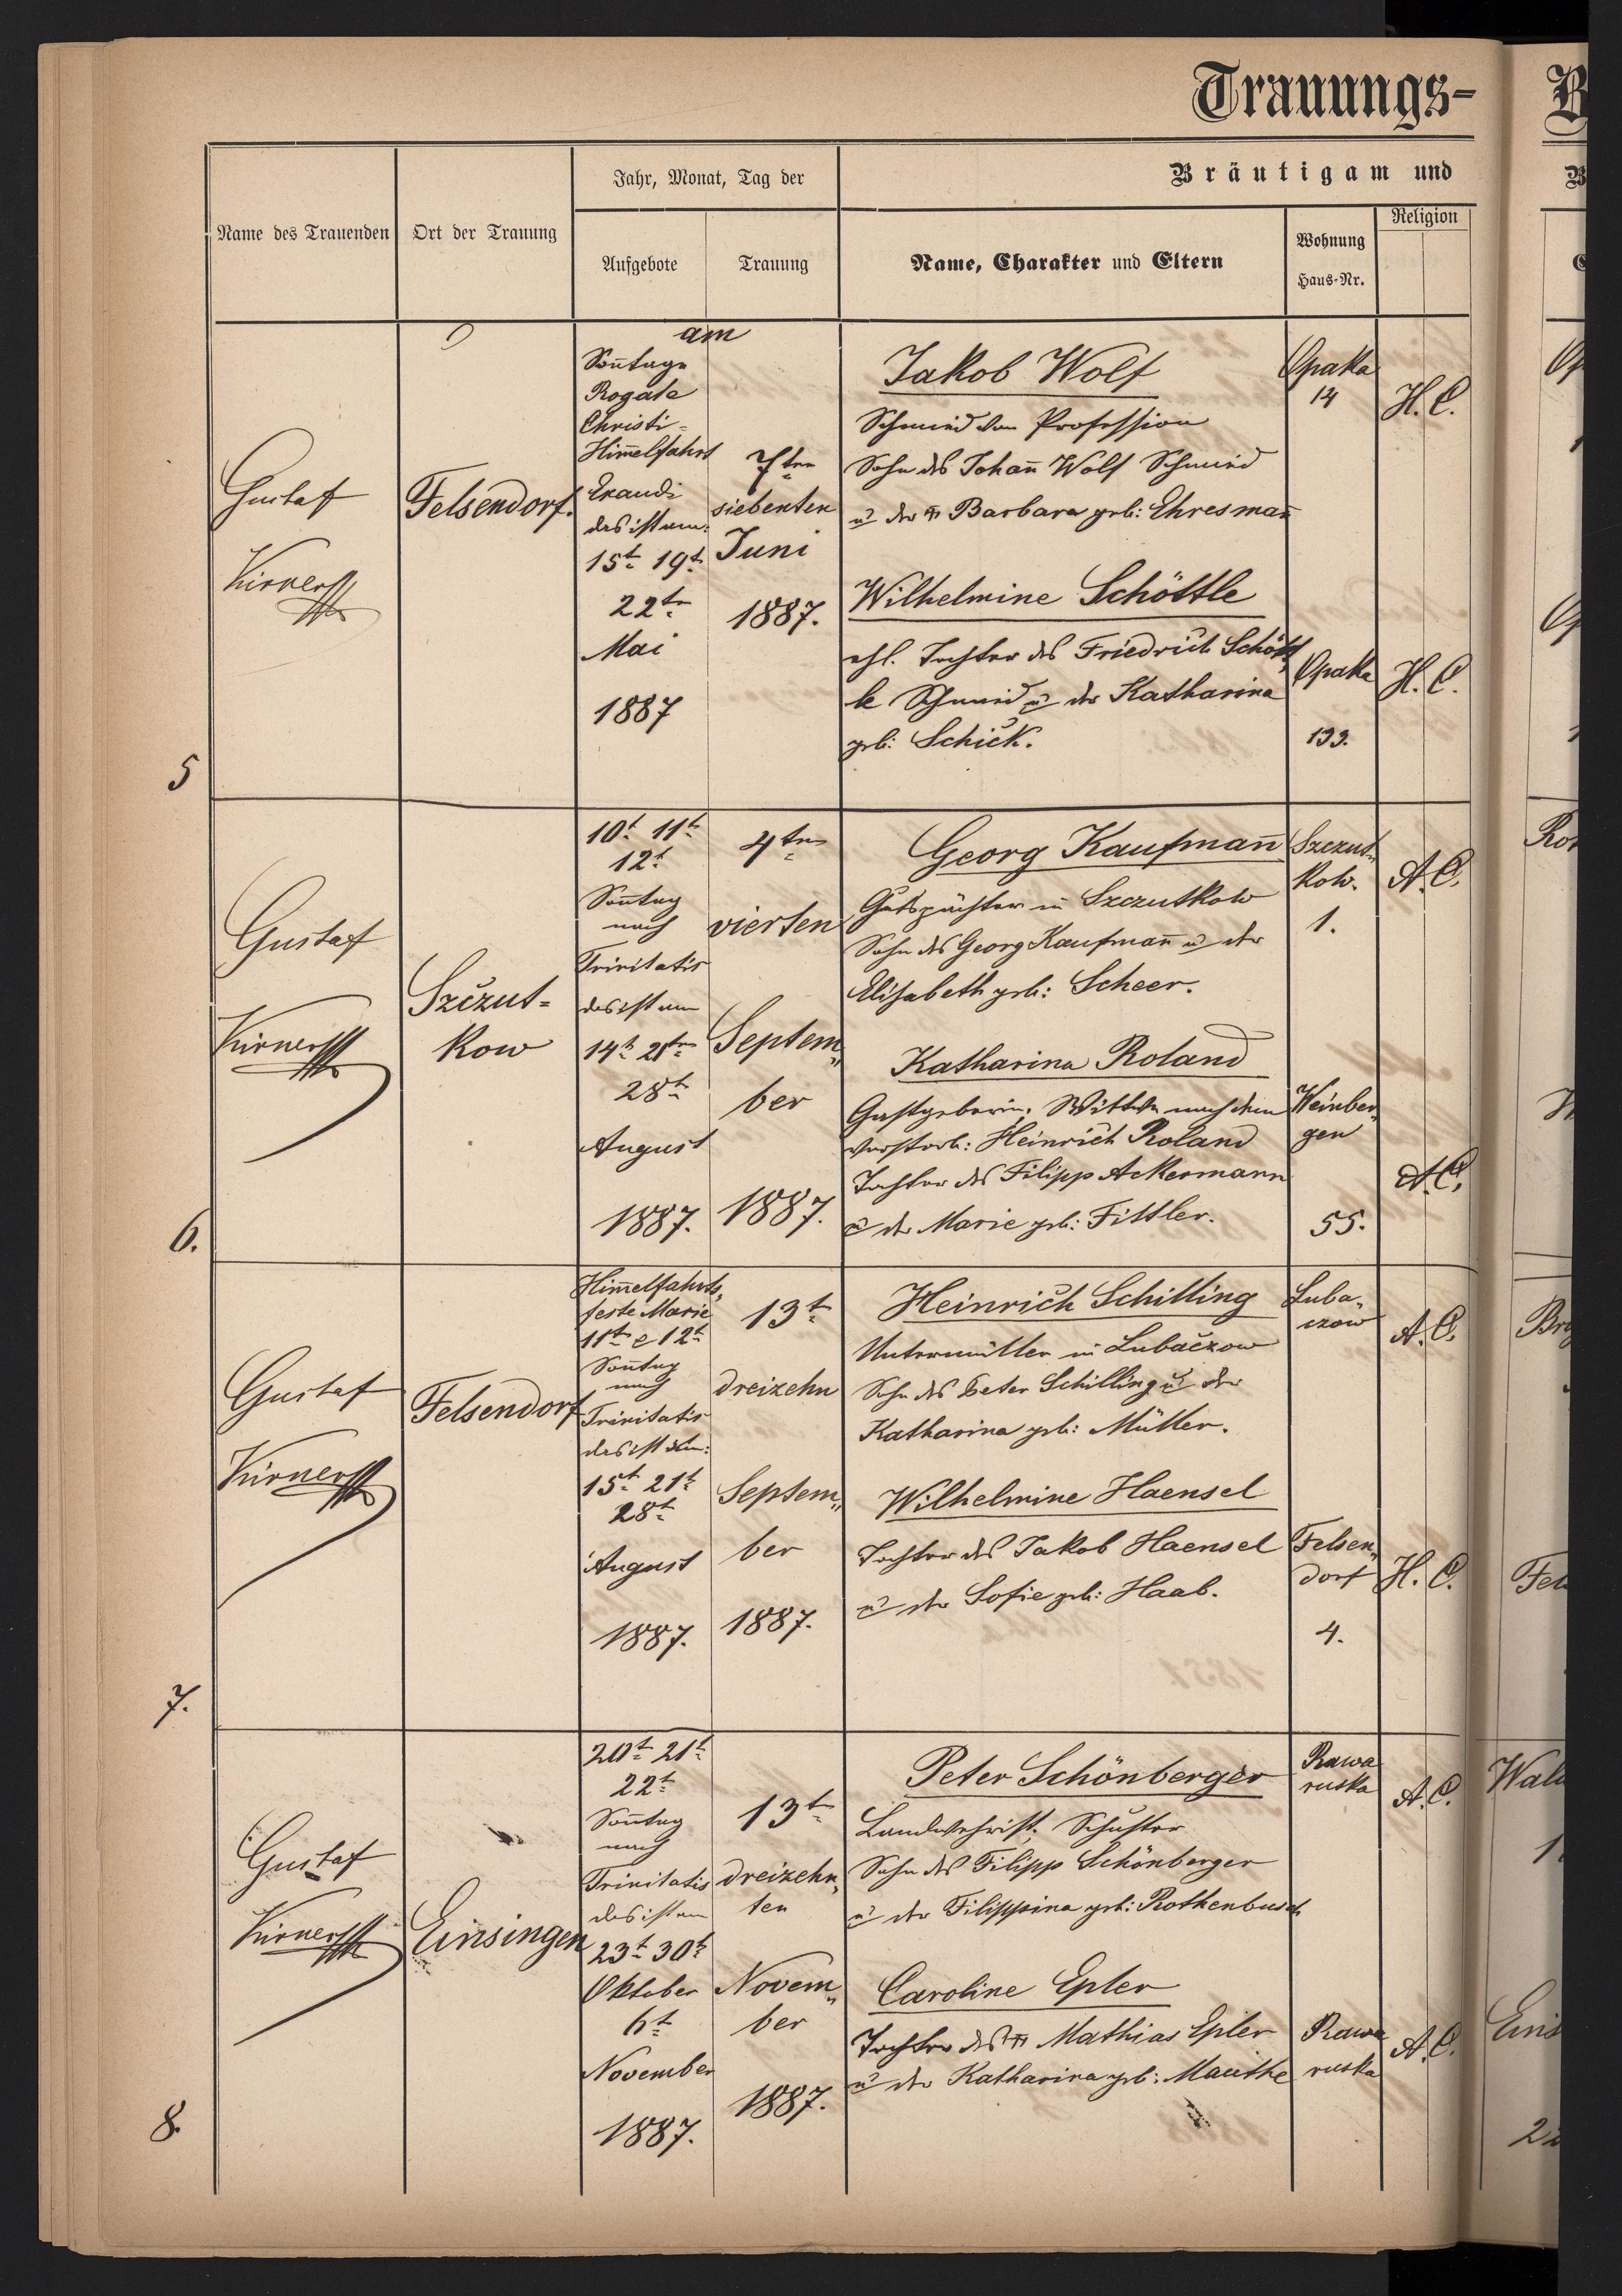 Trauungs-
Jahr, Monat, Tag der
Bräutigam und
Name des Trauenden
Ort der Trauung
Aufgebote
Trauung
Name, Charakter und Eltern
Wohnung
Haus-Nr.
Religion
5
Gustaf
Kirner
Felsendorf.
am
Sonntage
Rogate
Christi-
Him̅elfahrt
Exaudi
das ist am:
15t 19t
22ten
Mai
1887
7ten
siebenten
Juni
1887.
Jakob Wolf
Schmied von Profession
Sohn des Johan̅ Wolf Schmied
u der Barbara geb: Ehresman̅
Opaka
14
H. C.
Wilhelmine Schöttle
ehl. Tochter des Friedrich Schött
le Schmied u der Katharina
geb: Schick.
Opaka
133.
H. C.
6.
Gustaf
Kirner
Szczut=
kow
10t 11t
12t
Son̅tag
nach
Trinitatis
das ist am
14t 21ten
28t
August
1887.
4ten
vierten
Septem„
ber
1887.
Georg Kaufman̅
Gutspächter in Szczutkow
Sohn des Georg Kaufman̅ u der
Elisabeth geb: Scheer.
Szczut„
kow.
1.
A. C.
Katharina Roland
Gastgeberin, Wittwe nach dem
verstorb: Heinrich Roland
Tochter des Filipp Ackermann
u der Marie geb: Fittler.
Weinber„
gen
55.
A. C.
7.
Gustaf
Kirner
Felsendorf
Him̅elfahrts„
feste Marie
11t e 12t
Son̅tag
nach
Trinitatis
das ist am:
15t 21t
28t
August
1887.
13t
dreizehn
Septem„
ber
1887.
Heinrich Schilling
Untermüller in Lubaczow
Sohn des Peter Schilling u der
Katharina geb: Müller.
Luba„
czow
A. C.
Wilhelmine Haensel
Tochter des Jakob Haensel
u der Sofie geb: Haab.
Felsen„
dorf
4.
H. C.
8.
Gustaf
Kirner
Einsingen
20t 21t
22t
Son̅tag
nach
Trinitatis
das ist am
23t 30t
Oktober
6t
November
1887.
13t
dreizehn„
ten
Novem„
ber
1887.
Peter Schönberger
Schuster
Sohn des Filipp Schönberger
u der Filippina geb: Rothenbusch
Rawa
ruska
A. C.
Caroline Epler
Tochter des Mathias Epler
u der Katharina geb: Mauthe
Rawa
ruska
A. C.